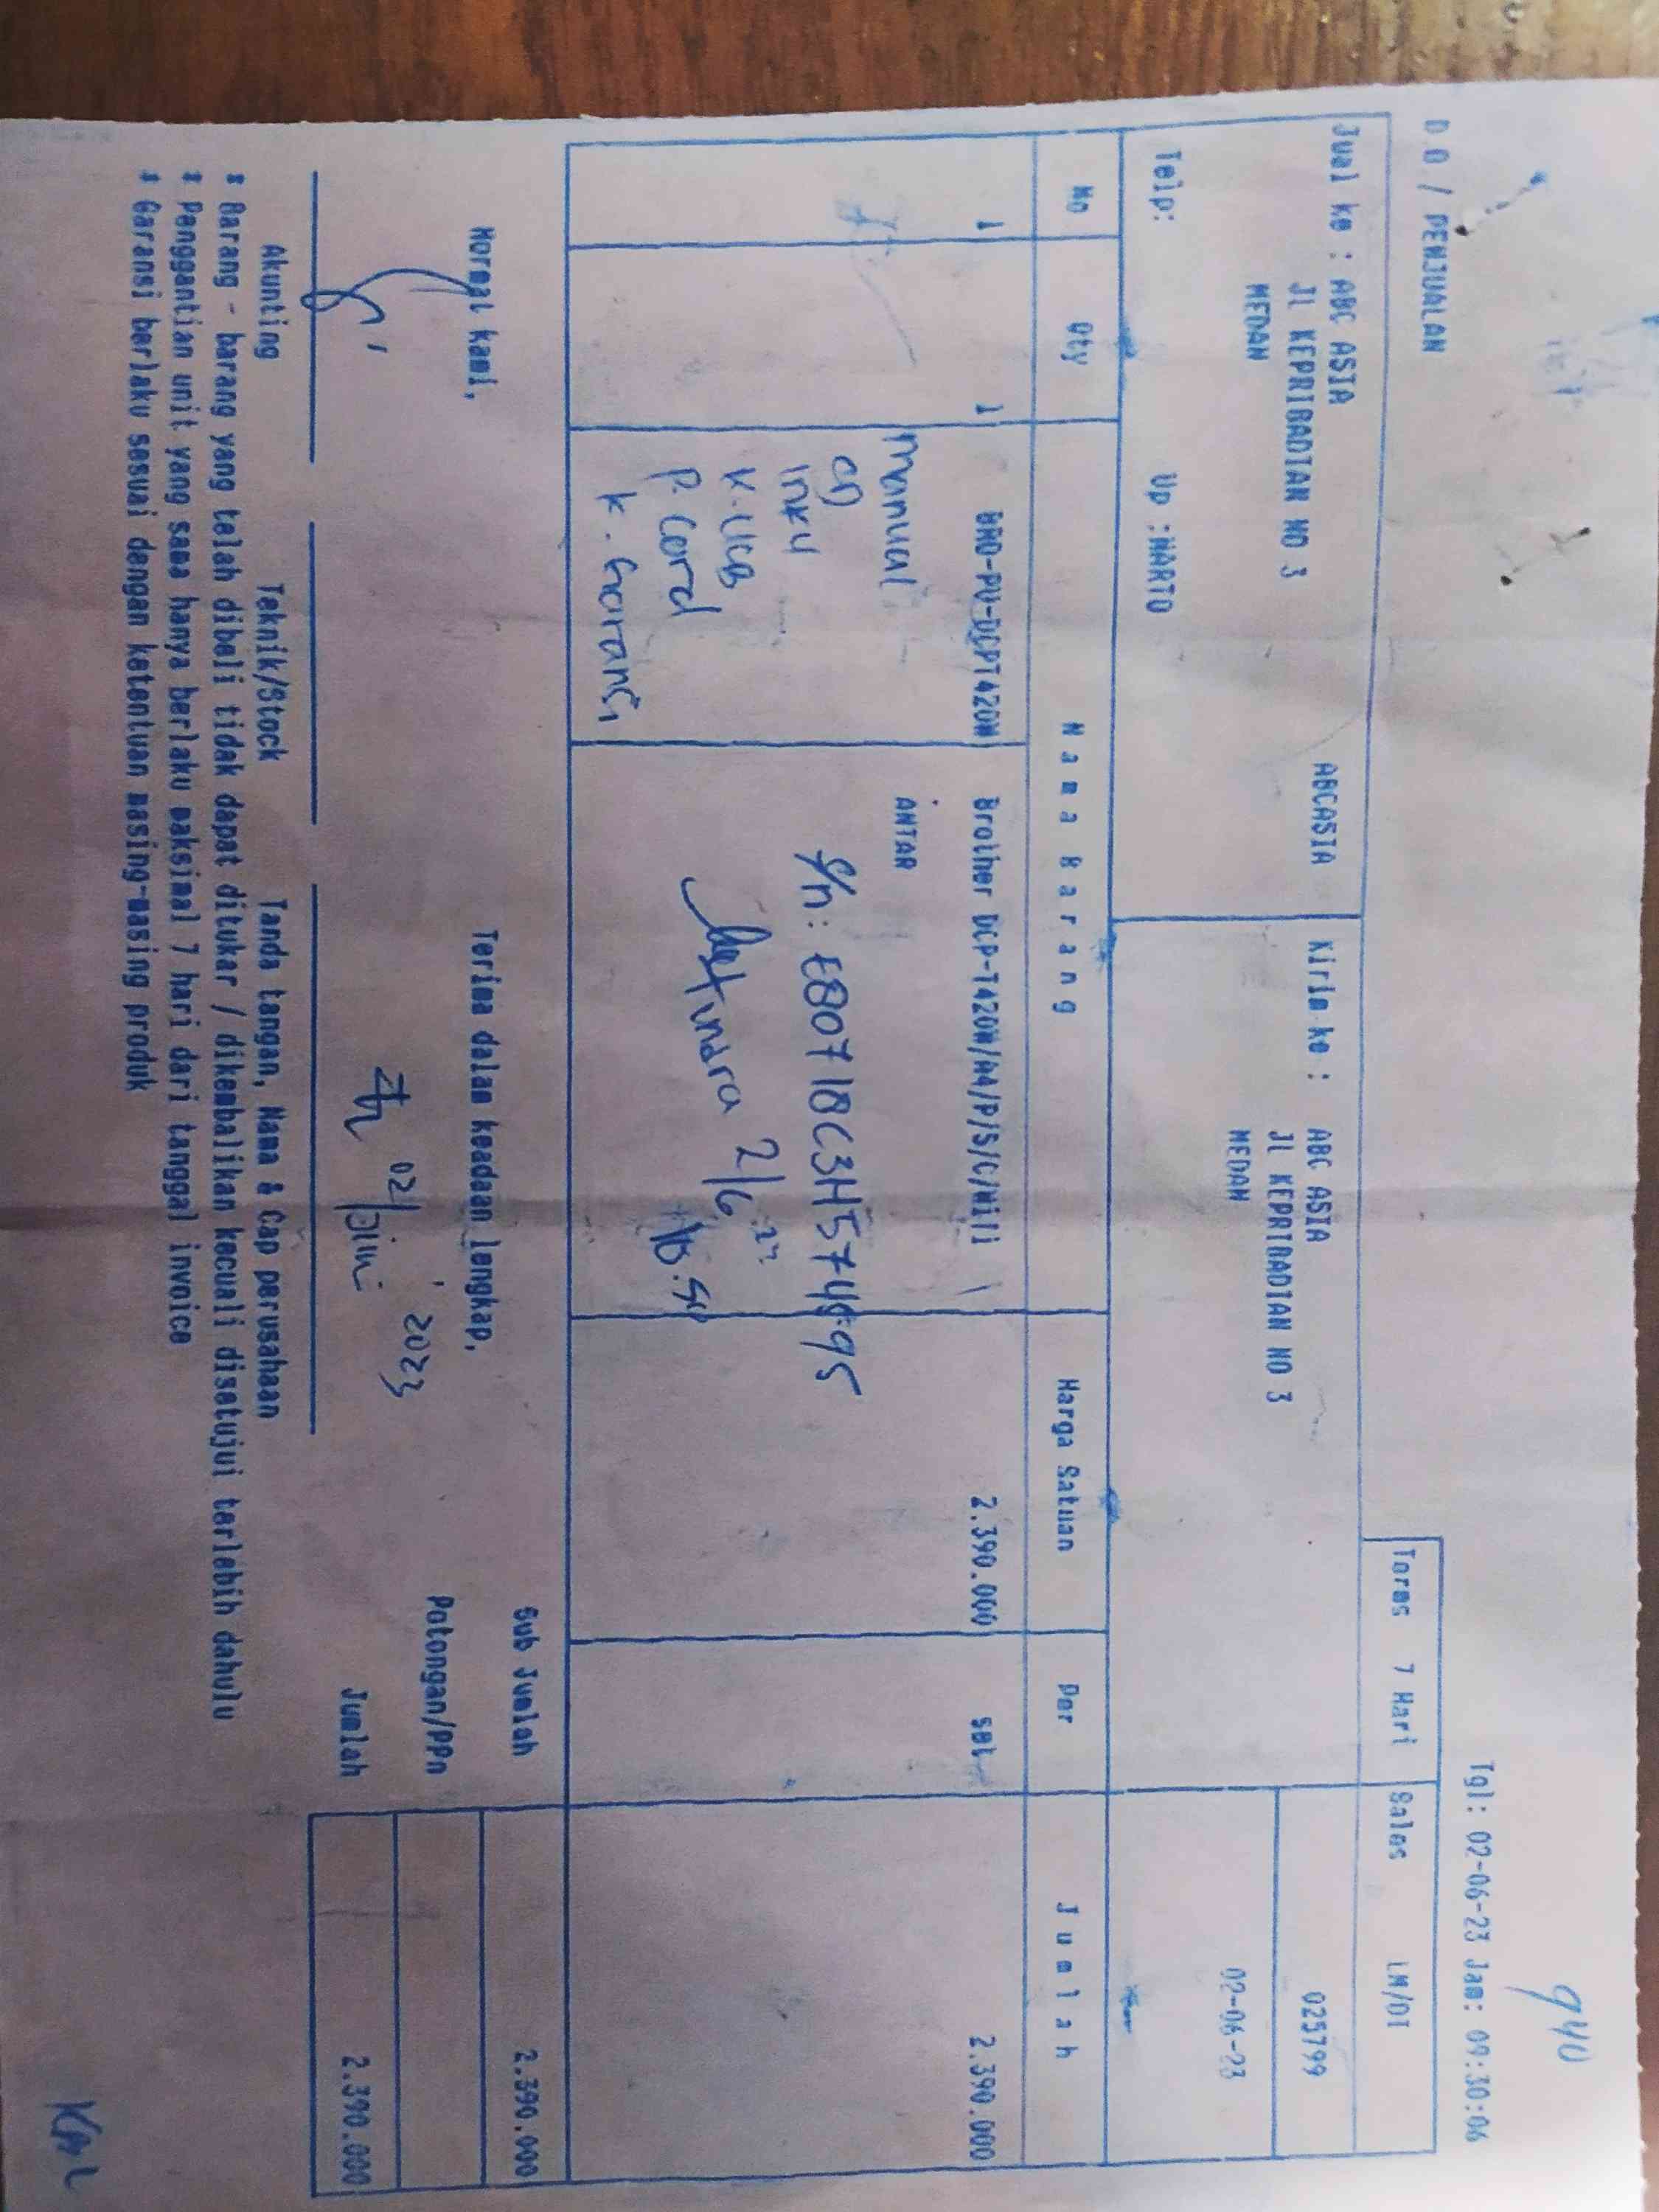 940
Tgl: 02-06-23 Jam: 09:30:06
D O / PENJUALAN
Terms 7 Hari Sales LM/DI
Jual ke : ABC ASIA ABCASIA
JL KEPRIBADIAN NO 3
MEDAN
Telp: Up :MARTO
Kirim ke : ABC ASIA
JL KEPRIBADIAN NO 3
MEDAN
025799
02-06-23
No Qty Nama Barang Harga Satuan Per Jumlah
1 1 BRO-PU-DCPT420W Brother DCP-T420W/A4/P/S/C/Wifi 2.390.000 set 2.390.000
ANTAR
Manual
CD
Ink4
K.USB
P.Cord
K.Garansi
S/n: E80718C3H574695
2/6
Hormat kami,
Terima dalam keadaan lengkap,
Sub Jumlah 2.390.000
Potongan/PPn
Jumlah 2.390.000
02/juni 2023
Akunting Teknik/Stock Tanda tangan, Nama & Cap perusahaan
* Barang - barang yang telah dibeli tidak dapat ditukar / dikembalikan kecuali disetujui terlebih dahulu
* Penggantian unit yang sama hanya berlaku maksimal 7 hari dari tanggal invoice
* Garansi berlaku sesuai dengan ketentuan masing-masing produk